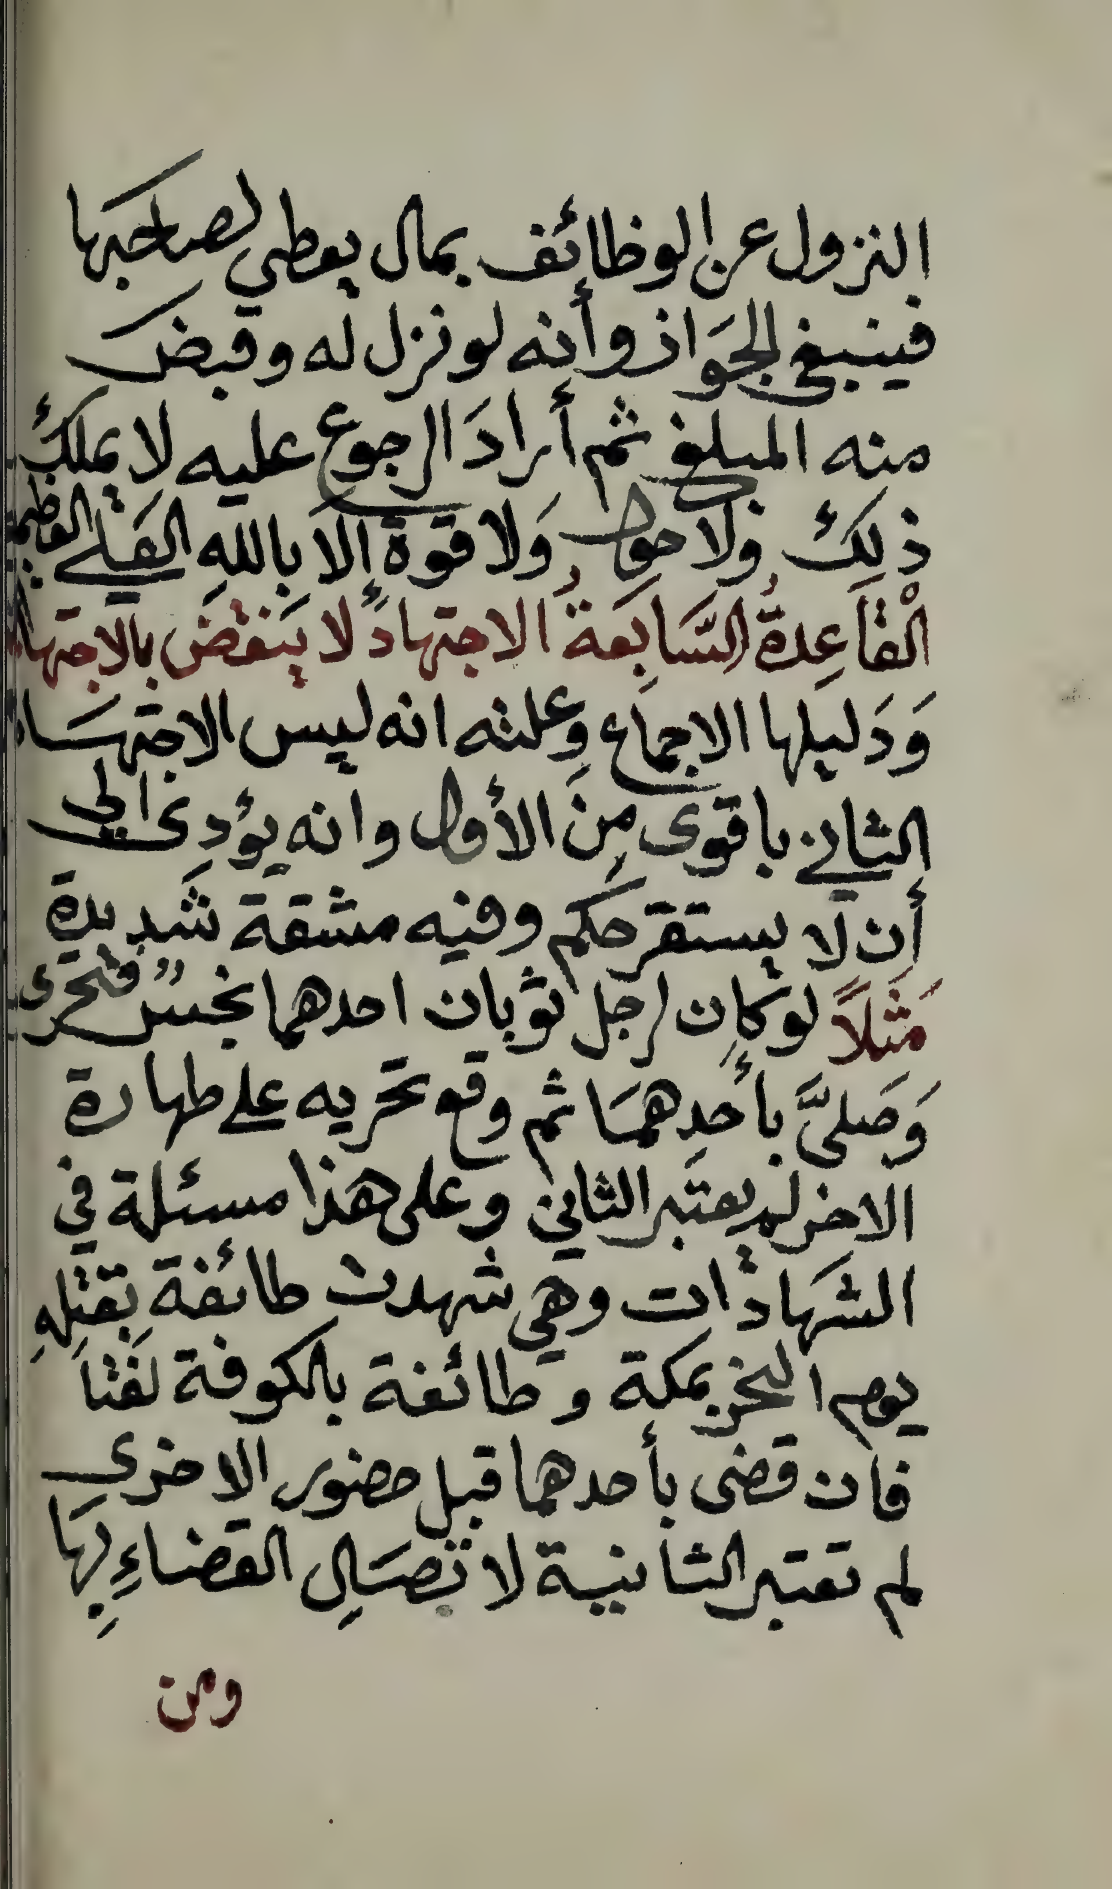 النزول عن الوظائف بمال يعطي لصاحبها
فينبغي الجَوَاز وأنه لو نزل له وقبض
منه المبلغ ثم أرادَ الرجوع عليه لا يملك
ذلك ولا حول وَلا قوة إلا بالله العَلي العظيم
الْقاَعِدةُ السَّابِعَةُ الاجتهادُ لا يَنقضُ بالاجتهاد
وَدَليلها الاجماع وعلته انه ليس الاجتهاد
الثاني باقوى مِنَ الأول وانه يؤدى الى
أن لا يستقر حكم وفيه مشقة شديدة
مَثَلاً لو كان لرجل ثوبان احدهما نجسٌ فتحرى
وَصَلىَّ بأحدِهمَا ثم وقع تحريه على طهارة
الاخر لم يعتبر الثاني وعلى هذا مسئلة في
الشهادات وهي شهدت طائفة بقتلهِ
يوم النحر بمكة وطائفة بالكوفة لَغَتا
فان قضى بأحدهما قبل حضور الاخرى
لم تعتبر الثانية لاتصَالِ القضاءِ بِهَا
ومن